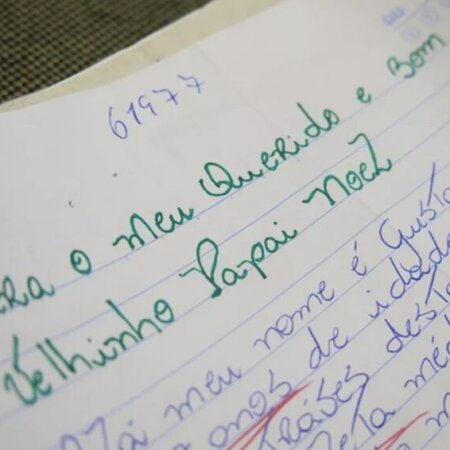 61977
ra o meu Querido e Bom
Velhinho Papai Noel
meu nome é Gusta
anos de idade
atráses desta